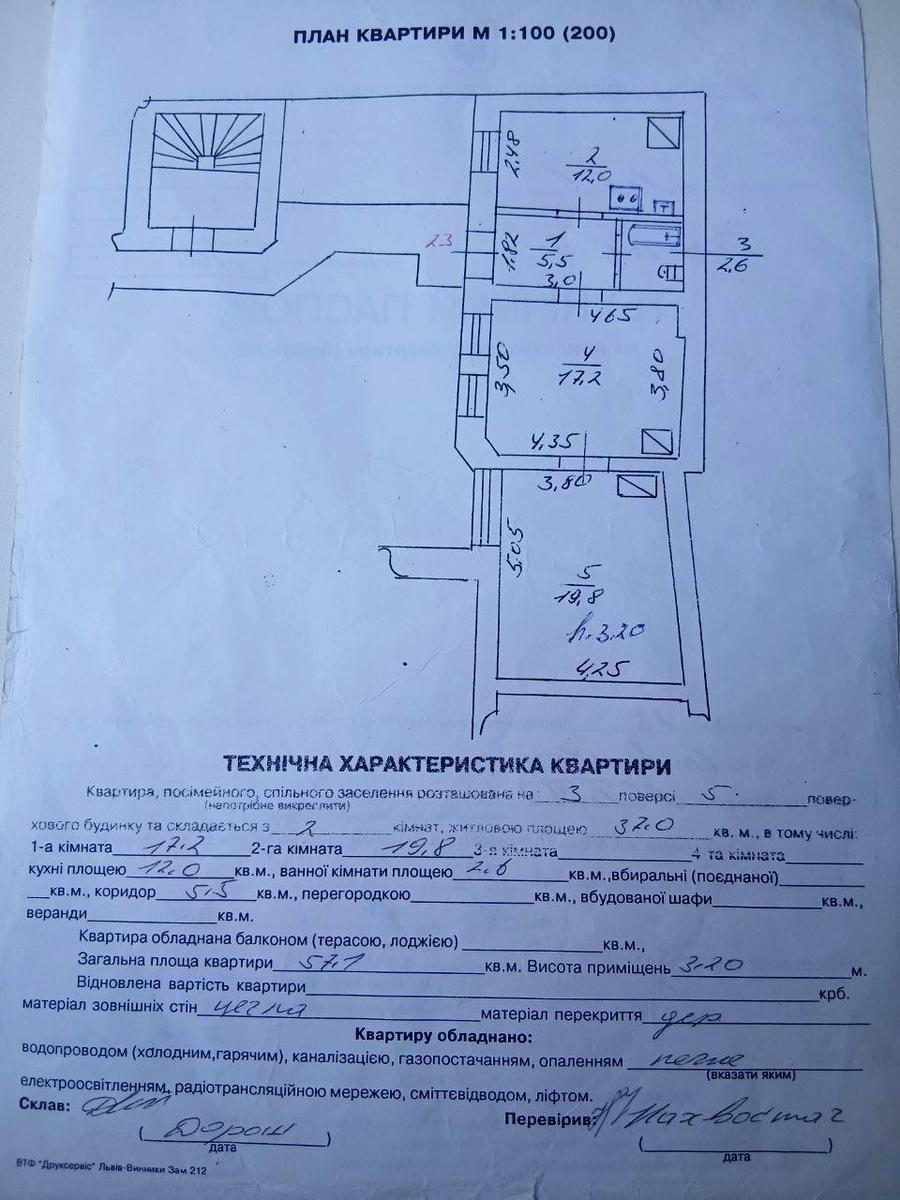 ПЛАН КВАРТИРИ М 1:100 (200)
2,48
2
12,0
23
1,82
1
5,5
3,0
3
2,6
4,65
3,50
4
17,2
3,80
4,35
3,80
5,05
5
19,8
h.3.20
4,25
ТЕХНІЧНА ХАРАКТЕРИСТИКА КВАРТИРИ
Квартира, посімейного, спільного заселення розташована на 3 поверсі 5 повер-
(непотрібне викреглити)
хового будинку та складається з 2 кімнат, житловою площею 37.0 кв. м., в тому числі:
1-а кімната 17.2 2-га кімната 19,8 3-я кімната 4 та кімната
кухні площею 12.0 кв.м., ванної кімнати площею 2.6 кв.м.,вбиральні (поєднаної)
кв.м., коридор 5.5 кв.м., перегородкою кв.м., вбудованої шафи кв.м.,
веранди кв.м.
Квартира обладнана балконом (терасою, лоджією) кв.м.,
Загальна площа квартири 57.1 кв.м. Висота приміщень 3.20 м.
Відновлена вартість квартири крб.
матеріал зовнішніх стін цегла матеріал перекриття дер
Квартиру обладнано:
водопроводом (холодним,гарячим), каналізацією, газопостачанням, опаленням пічне
(вказати яким)
електроосвітленням, радіотрансляційною мережею, сміттєвідводом, ліфтом.
Склав: Перевірив:
(Дорош) ( )
дата дата
ВТФ "Друксервіс" Львів-Винники Зам 212